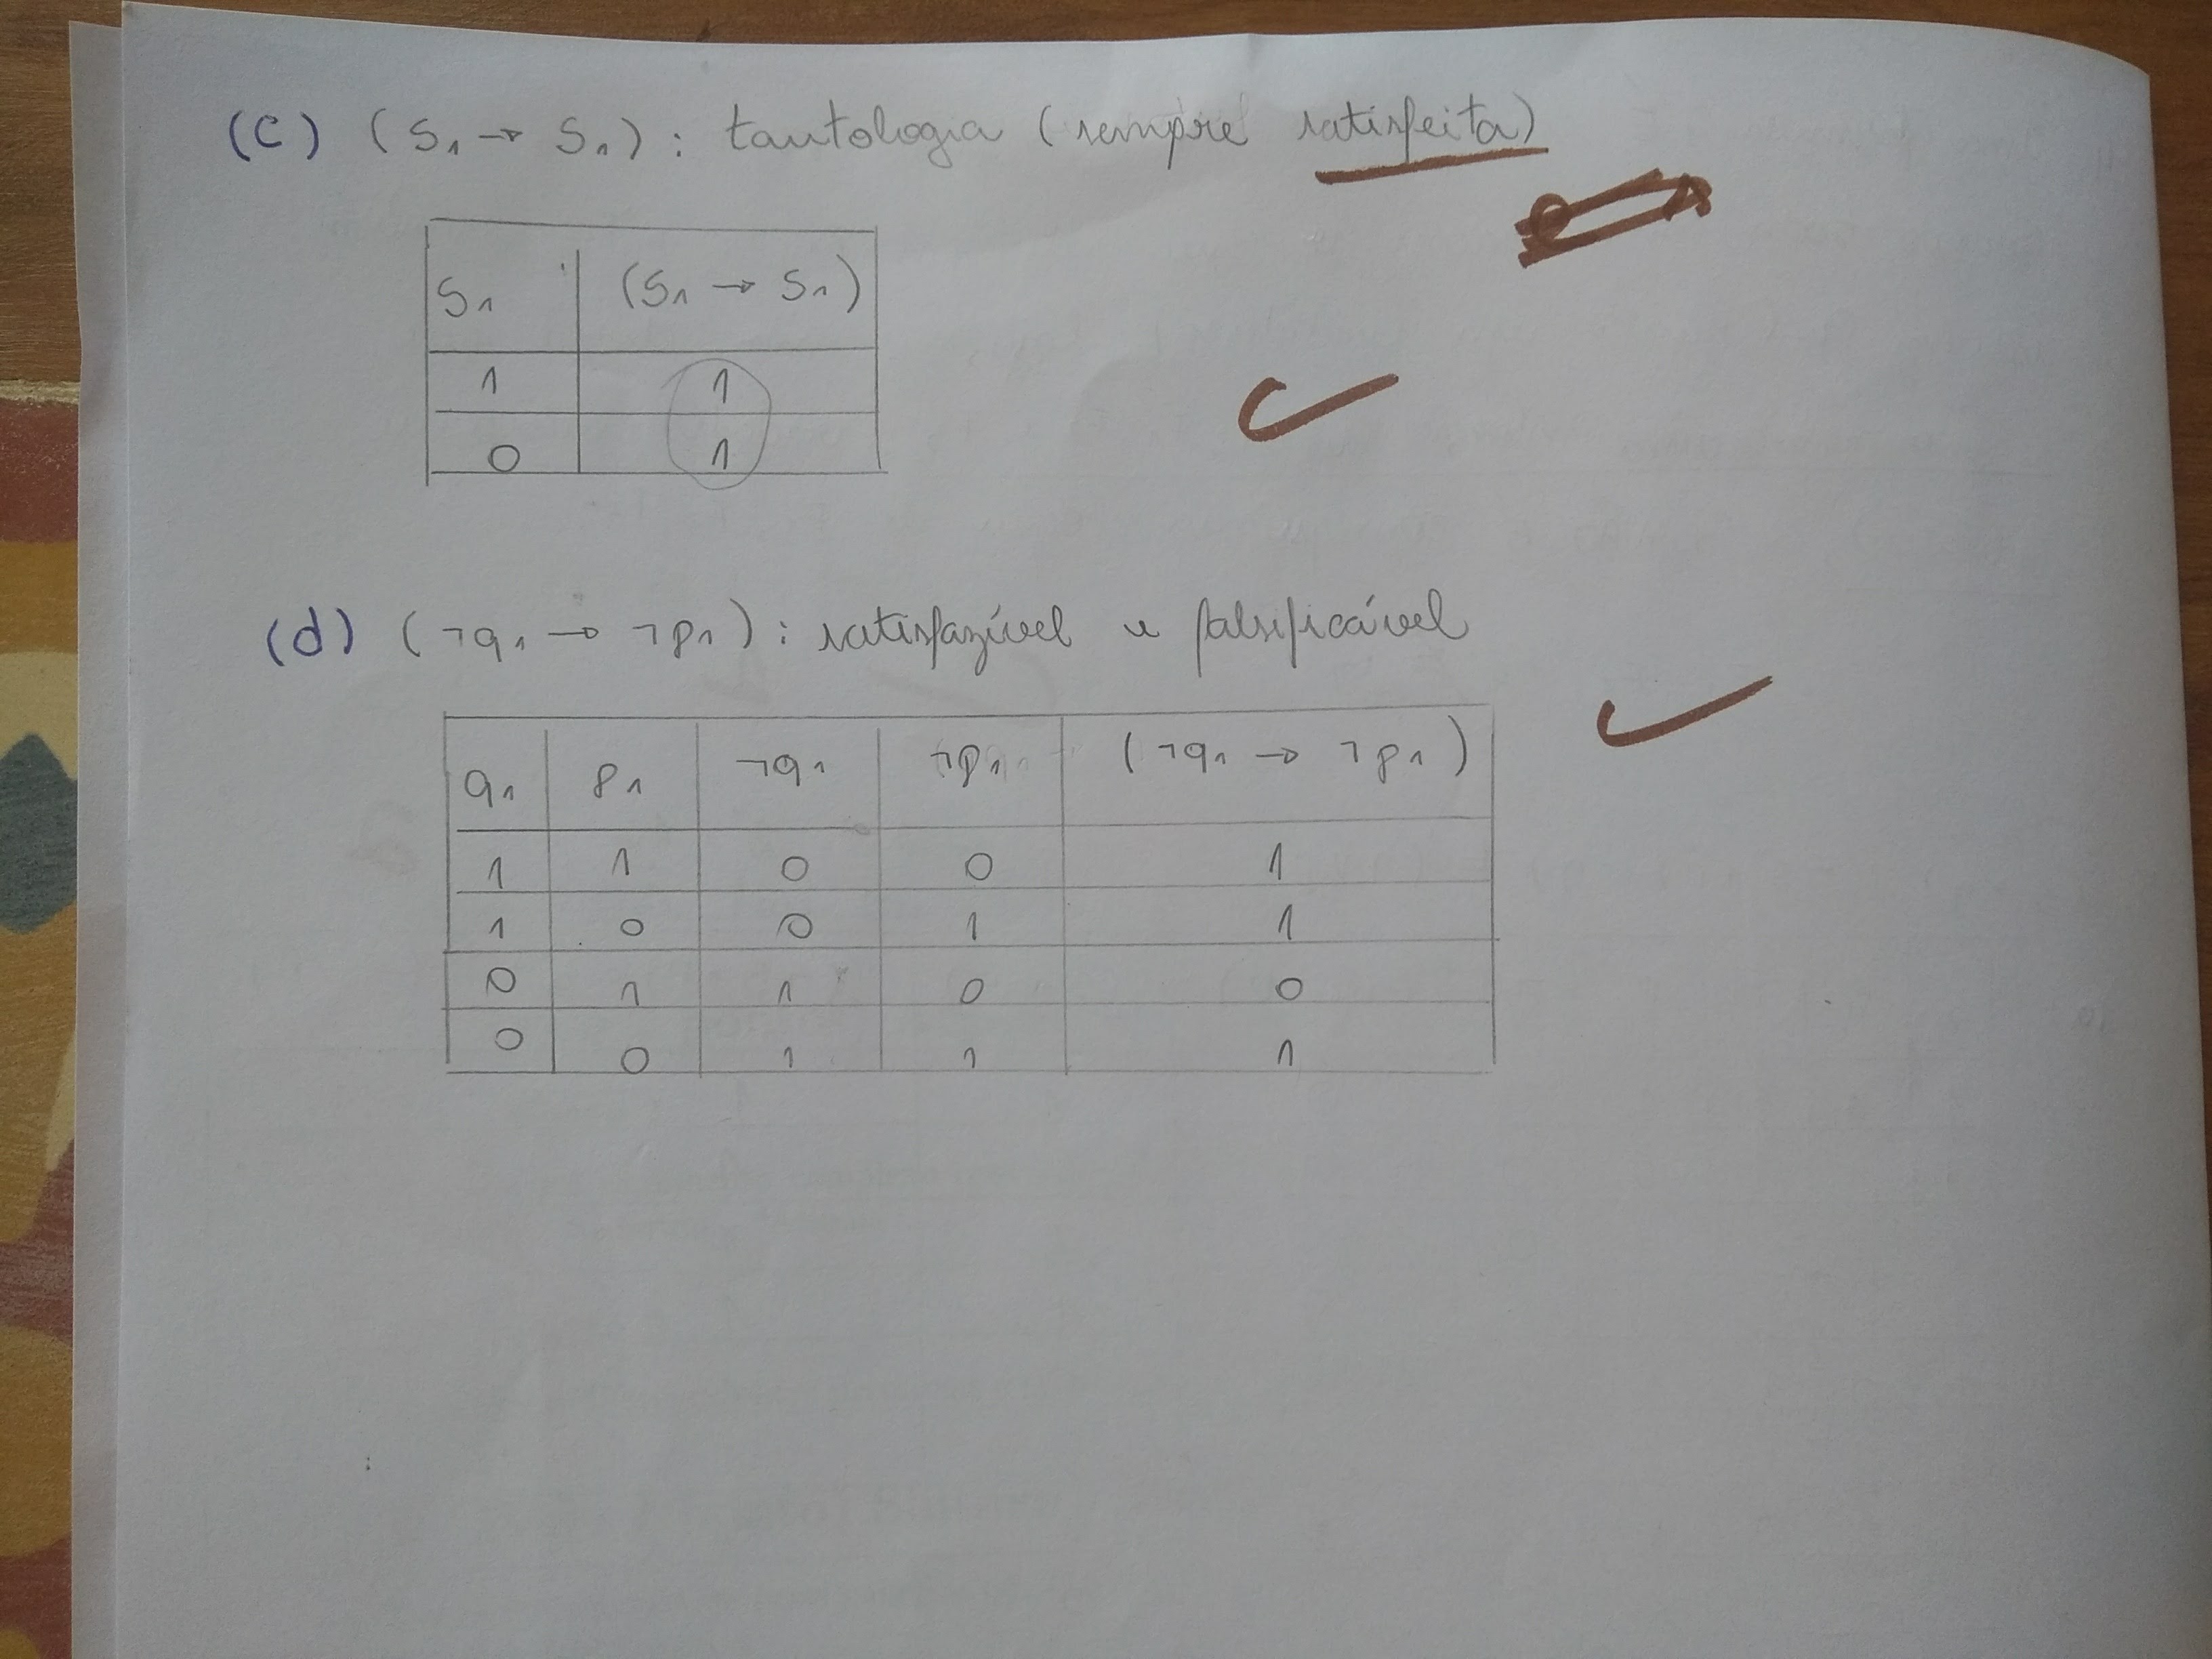 (c) (S₁ → S₁) : tautologia (sempre satisfeita)
S₁ (S₁ → S₁)
1 1
0 1
(d) (¬q₁ → ¬p₁) : satisfazível e falsificável
q₁ p₁ ¬q₁ ¬p₁ (¬q₁ → ¬p₁)
1 1 0 0 1
1 0 0 1 1
0 1 1 0 0
0 0 1 1 1